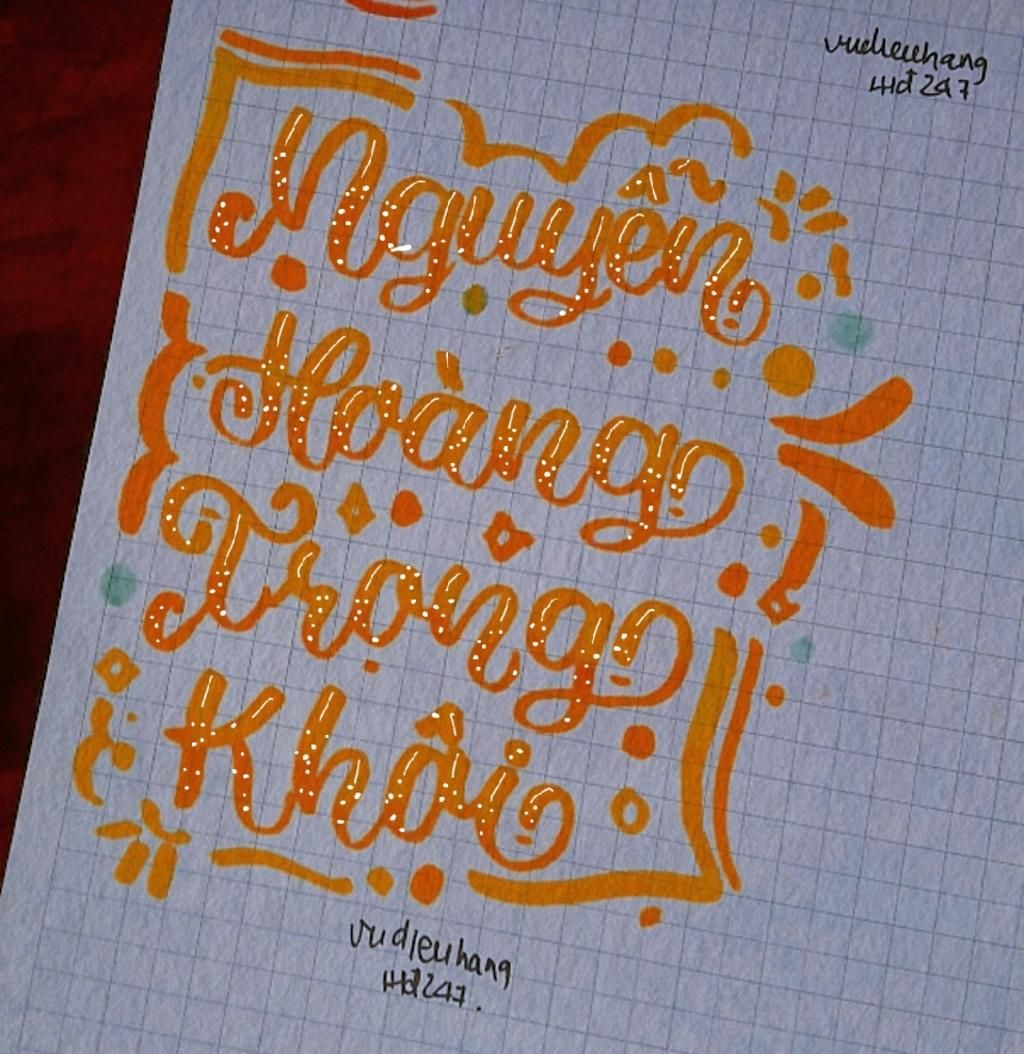 vudieuhang
Hđ247
Nguyễn
Hoàng
Trọng
Khôi
vudieuhang
Hđ247.